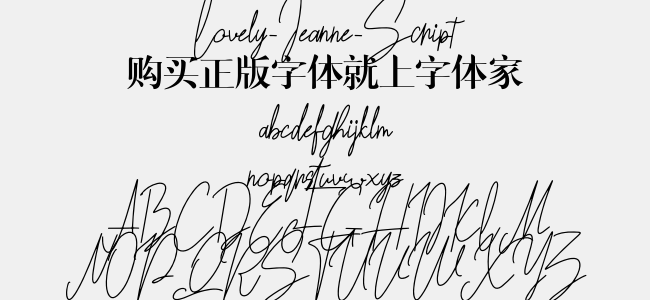 Lovely-Jeanne-Script
购买正版字体就上字体家
abcdefghijklm
nopqrstuvwxyz
ABCDEFGHIJKLM
NOPQRSTUVWXYZ